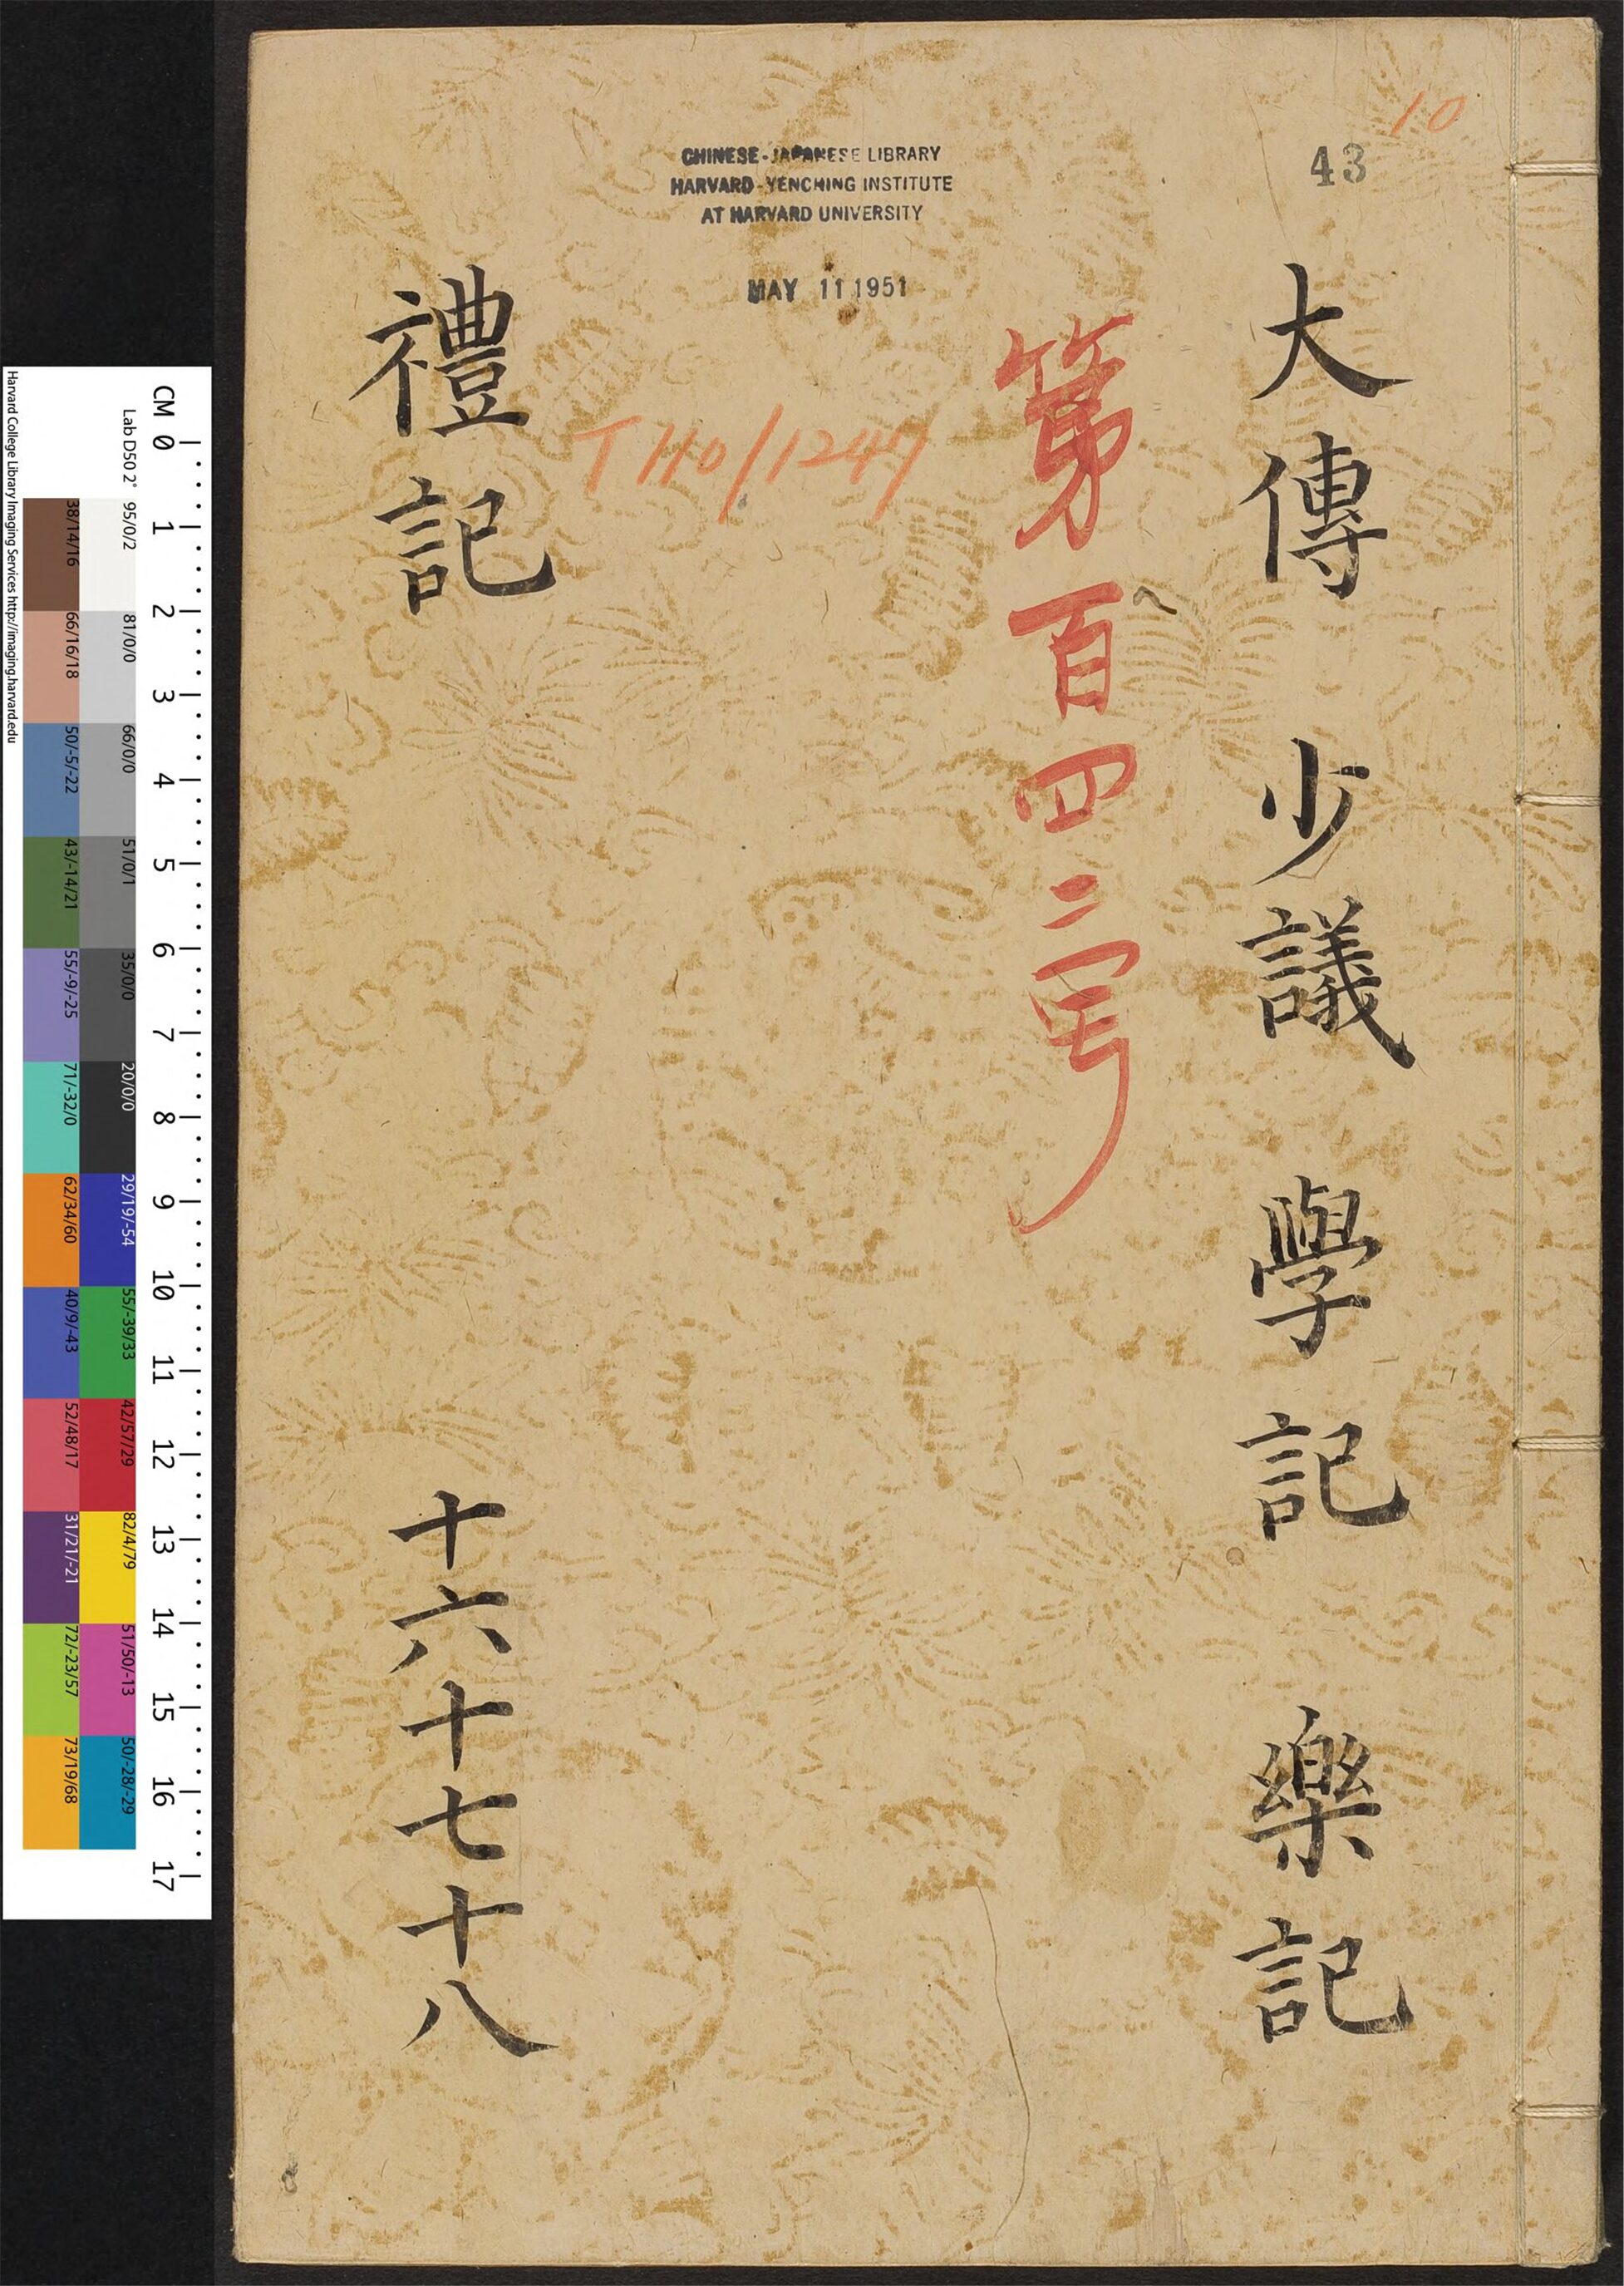 10
43
CHINESE-JAPANESE LIBRARY
HARVARD-YENCHING INSTITUTE
AT HARVARD UNIVERSITY
MAY 11 1951
大傳 少議 學記 樂記
第百四二号
T 110/1247
禮記 十六十七十八
CM 0 1 2 3 4 5 6 7 8 9 10 11 12 13 14 15 16 17
Lab D50 2° 95/0/2 81/0/0 66/0/0 51/0/1 35/0/0 20/0/0 29/19/-54 55/-39/33 42/57/29 82/4/79 51/50/-13 50/-28/-29
38/14/16 66/16/18 50/-5/-22 43/-14/21 55/-9/-25 71/-32/0 62/34/60 40/9/-43 52/48/17 31/21/-21 72/-23/57 73/19/68
Harvard College Library Imaging Services http://imaging.harvard.edu